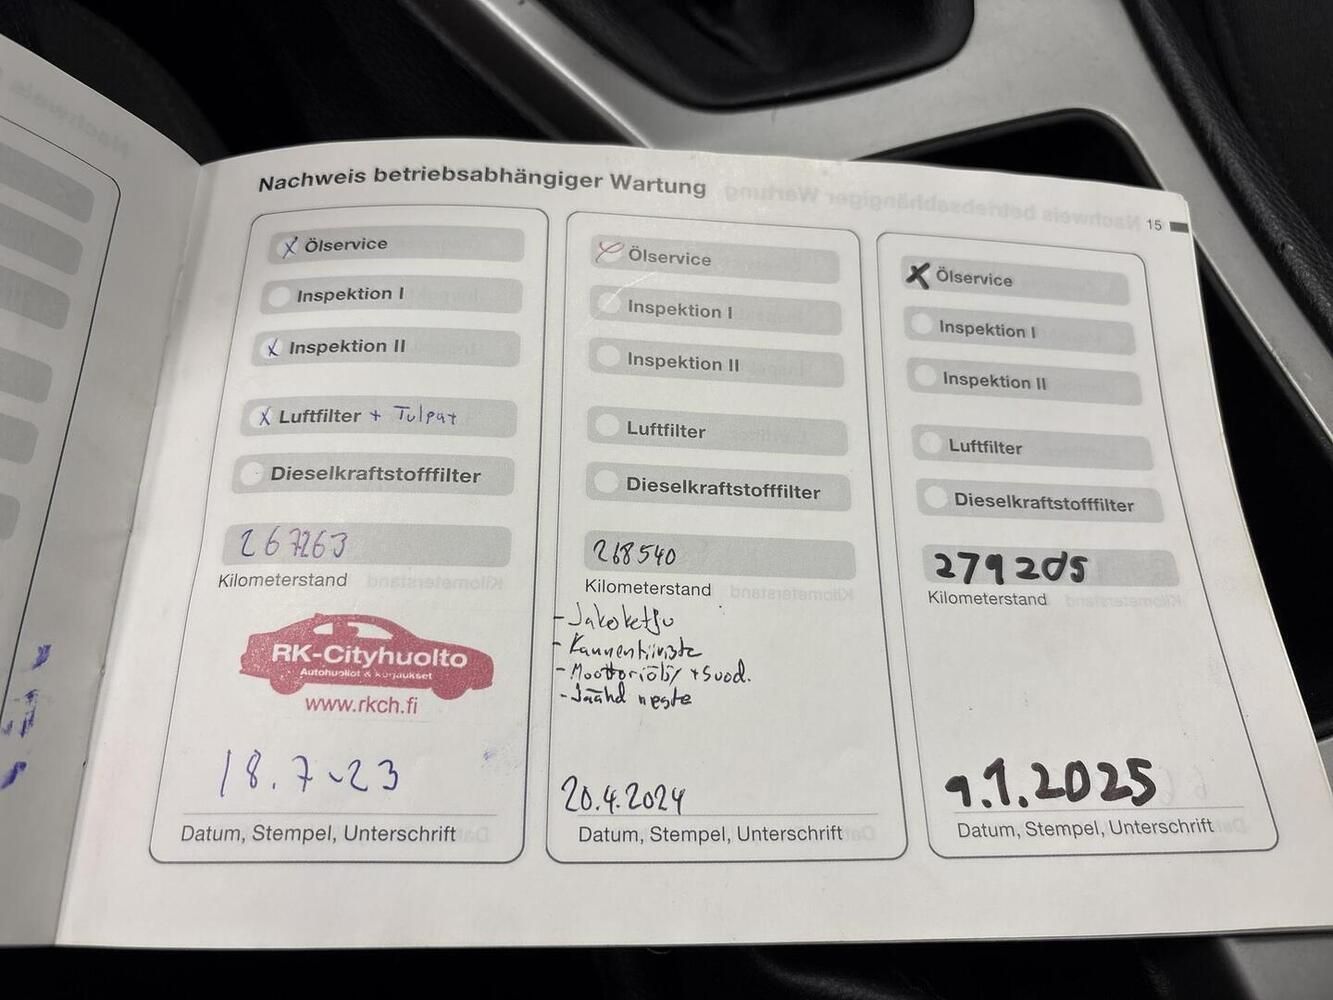 Nachweis betriebsabhängiger Wartung
15
x Ölservice
Inspektion I
x Inspektion II
x Luftfilter + Tulpat
Dieselkraftstofffilter
267263
Kilometerstand
RK-Cityhuolto
Autohuollot & korjaukset
www.rkch.fi
18.7-23
Datum, Stempel, Unterschrift
x Ölservice
Inspektion I
Inspektion II
Luftfilter
Dieselkraftstofffilter
268540
Kilometerstand
- Jakoketju
- Kannentiiviste
- Moottoriöljy + suod.
- Jäähd neste
20.4.2024
Datum, Stempel, Unterschrift
x Ölservice
Inspektion I
Inspektion II
Luftfilter
Dieselkraftstofffilter
Kilometerstand
9.1.2025
Datum, Stempel, Unterschrift